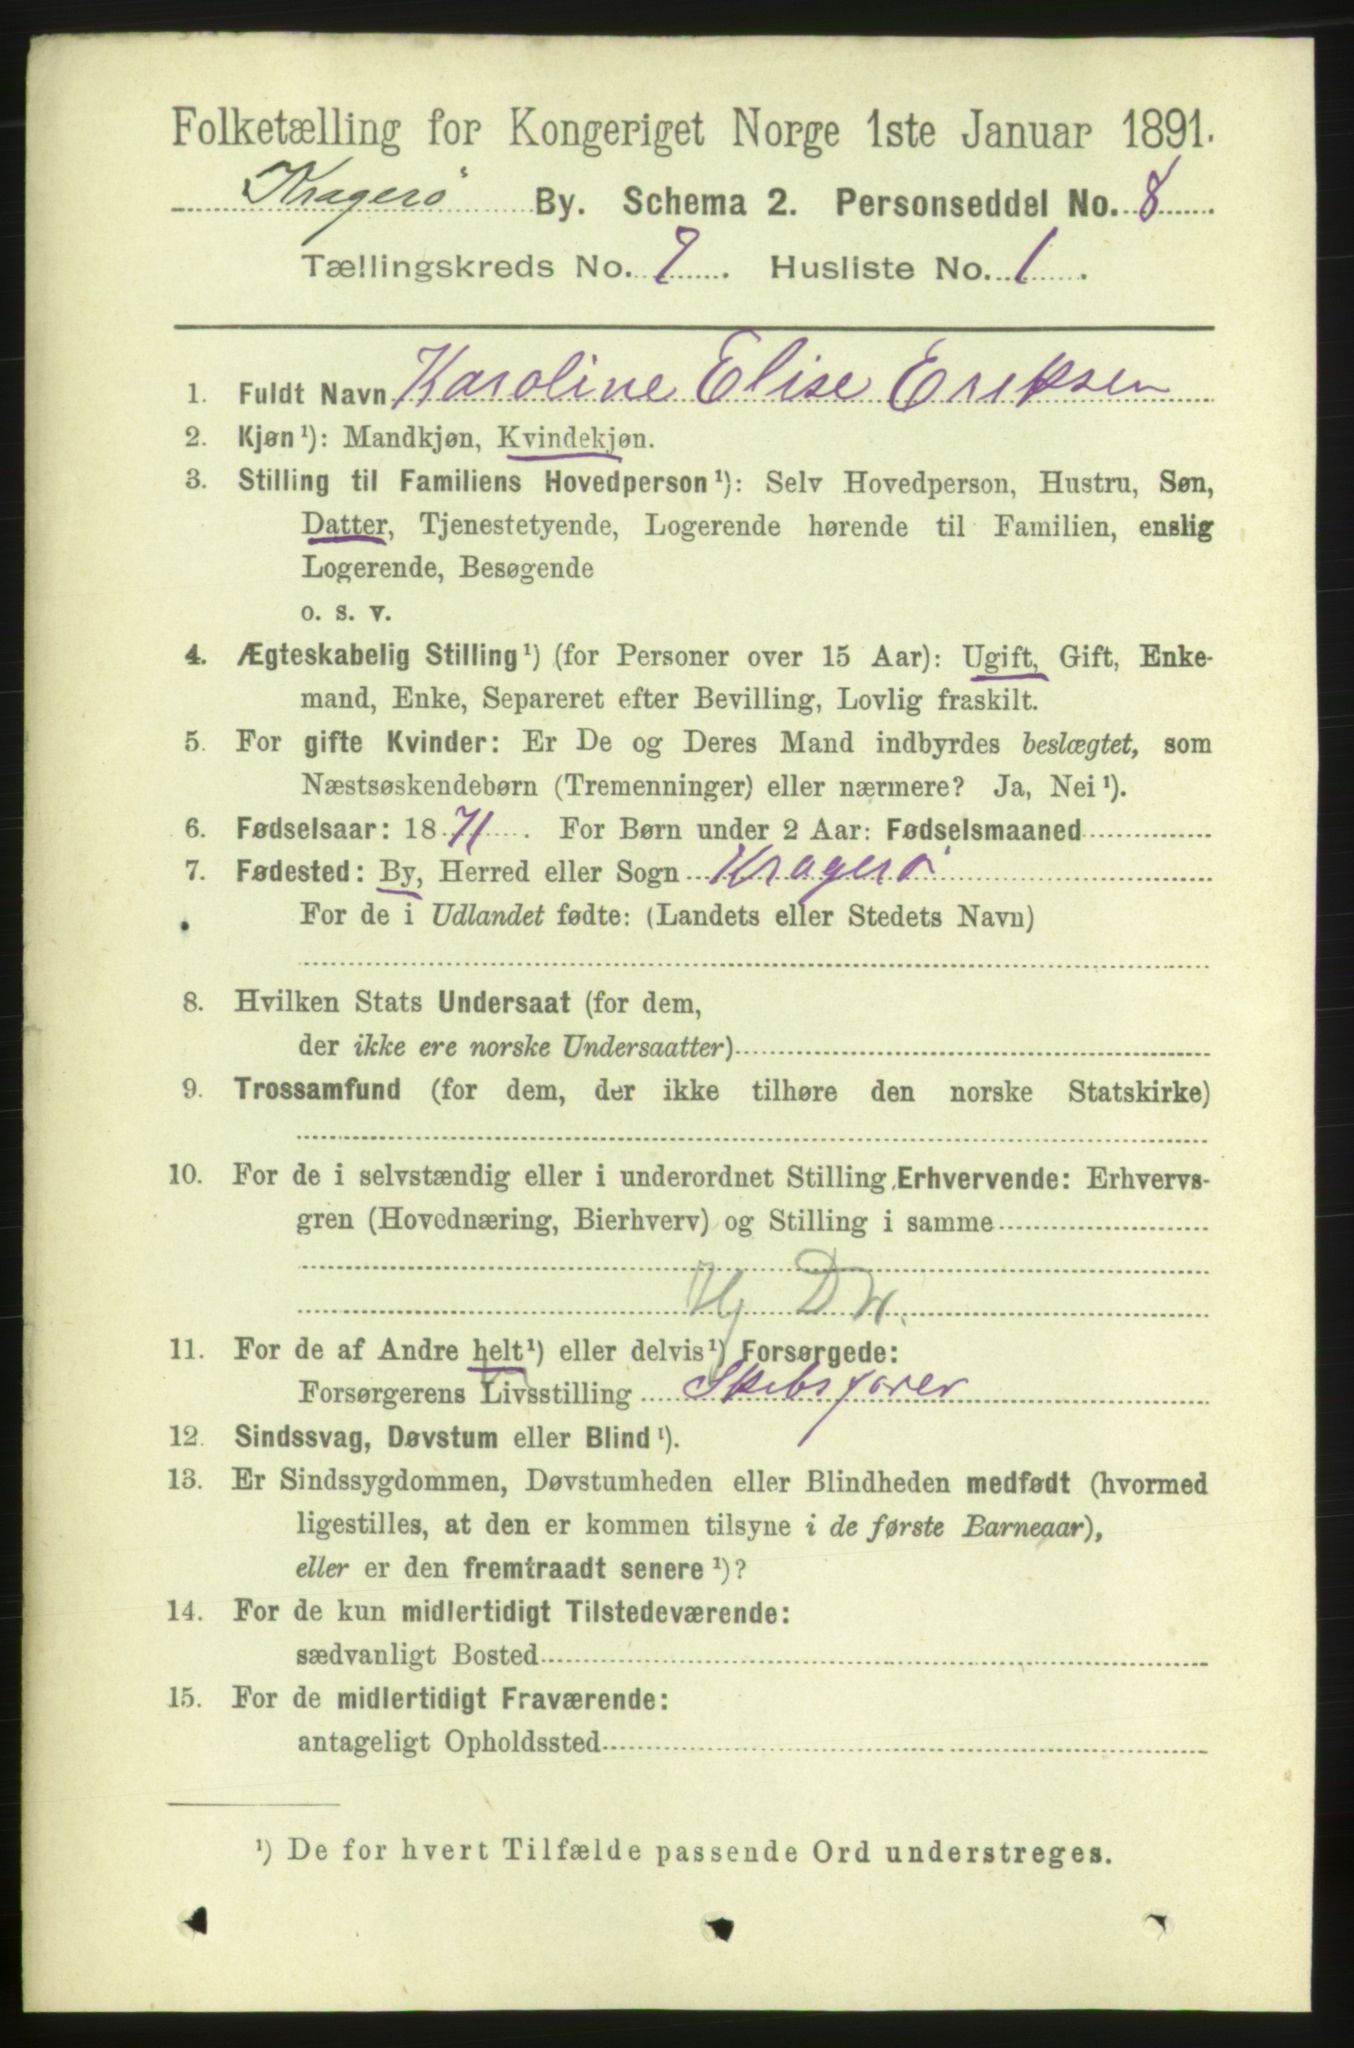 Folketælling for Kongeriget Norge 1ste Januar 1891.
Kragerø By. Schema 2. Personseddel No. 8
Tællingskreds No. 7. Husliste No. 1.
1. Fuldt Navn Karoline Elise Eriksen
2. Kjøn¹): Mandkjøn, Kvindekjøn.
3. Stilling til Familiens Hovedperson¹): Selv Hovedperson, Hustru, Søn,
Datter, Tjenestetyende, Logerende hørende til Familien, enslig
Logerende, Besøgende
o. s. v.
4. Ægteskabelig Stilling¹) (for Personer over 15 Aar): Ugift, Gift, Enke-
mand, Enke, Separeret efter Bevilling, Lovlig fraskilt.
5. For gifte Kvinder: Er De og Deres Mand indbyrdes beslægtet, som
Næstsøskendebørn (Tremenninger) eller nærmere? Ja, Nei¹).
6. Fødselsaar: 1871. For Børn under 2 Aar: Fødselsmaaned
7. Fødested: By, Herred eller Sogn Kragerø
For de i Udlandet fødte: (Landets eller Stedets Navn)
8. Hvilken Stats Undersaat (for dem,
der ikke ere norske Undersaatter)
9. Trossamfund (for dem, der ikke tilhøre den norske Statskirke)
10. For de i selvstændig eller i underordnet Stilling Erhvervende: Erhvervs-
gren (Hovednæring, Bierhverv) og Stilling i samme
11. For de af Andre helt¹) eller delvis¹) Forsørgede:
Forsørgerens Livsstilling Skibsfører
12. Sindssvag, Døvstum eller Blind¹).
13. Er Sindssygdommen, Døvstumheden eller Blindheden medfødt (hvormed
ligestilles, at den er kommen tilsyne i de første Barneaar),
eller er den fremtraadt senere¹)?
14. For de kun midlertidigt Tilstedeværende:
sædvanligt Bosted
15. For de midlertidigt Fraværende:
antageligt Opholdssted
¹) De for hvert Tilfælde passende Ord understreges.